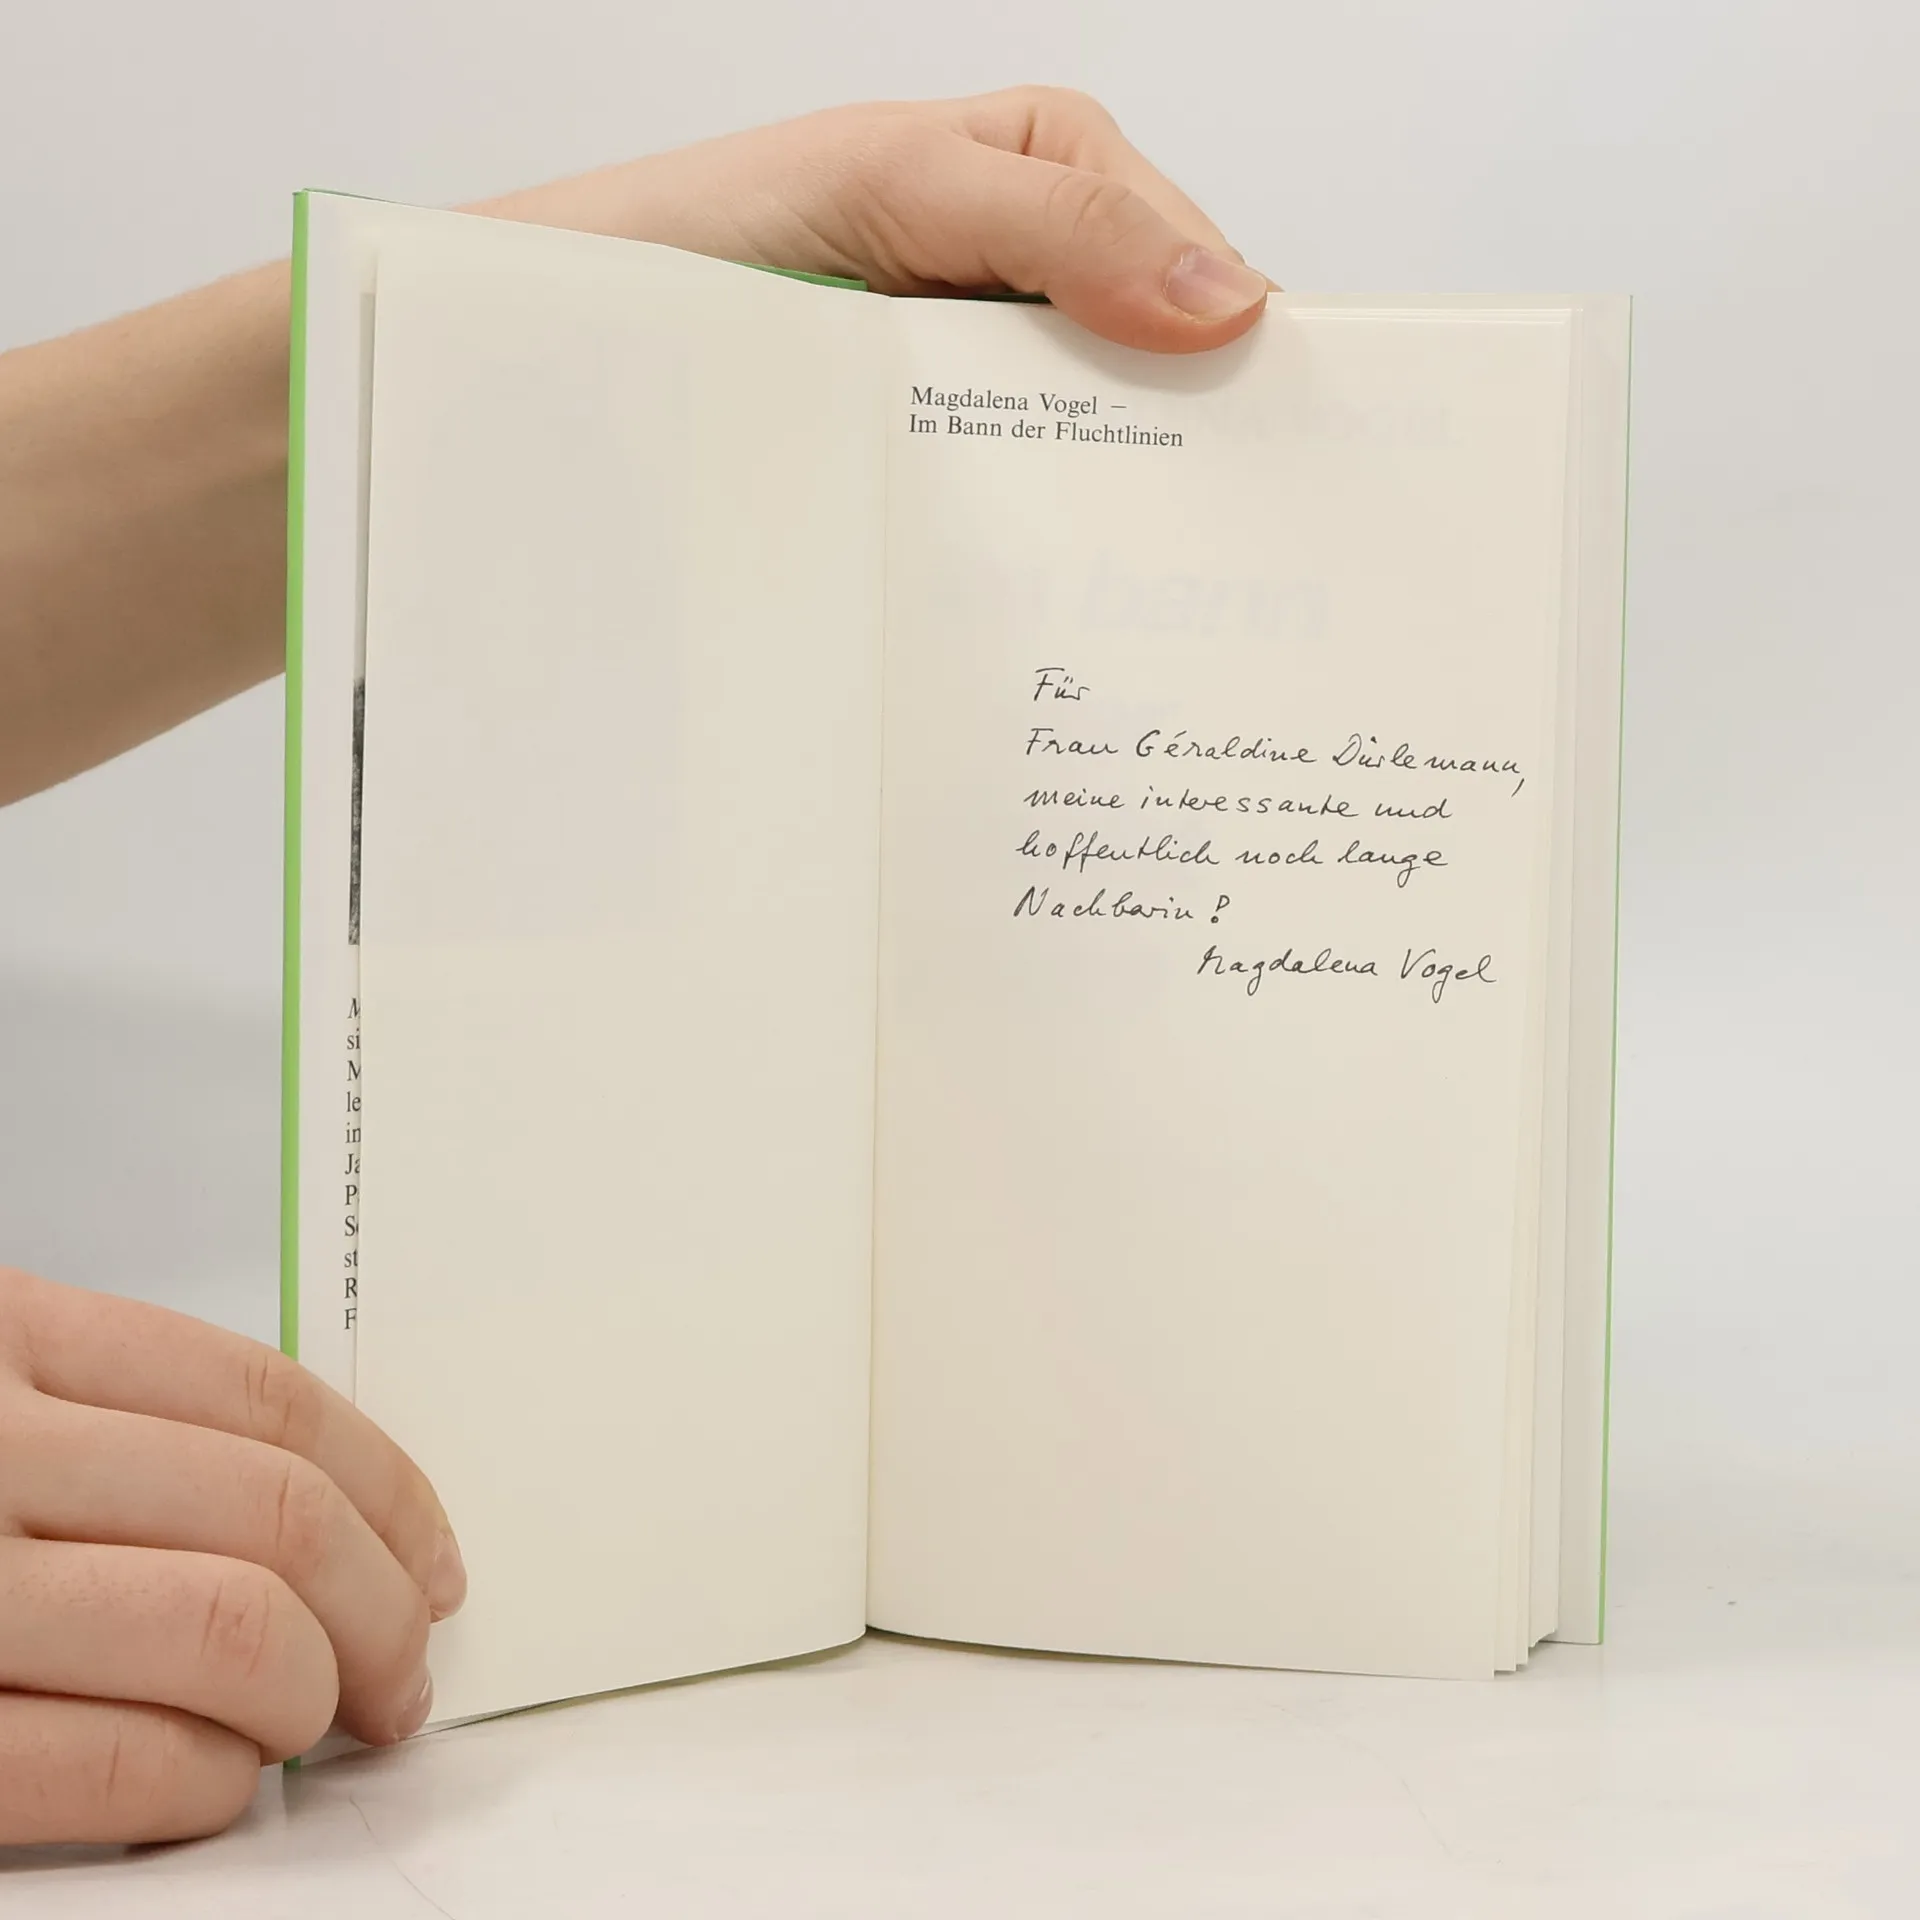 Magdalena Vogel –
Im Bann der Fluchtlinien
Für
Frau Géraldine Dürlemann,
meine interessante und
hoffentlich noch lange
Nachbarin!
Magdalena Vogel
M
si
M
le
in
Ja
P
Se
st
R
F